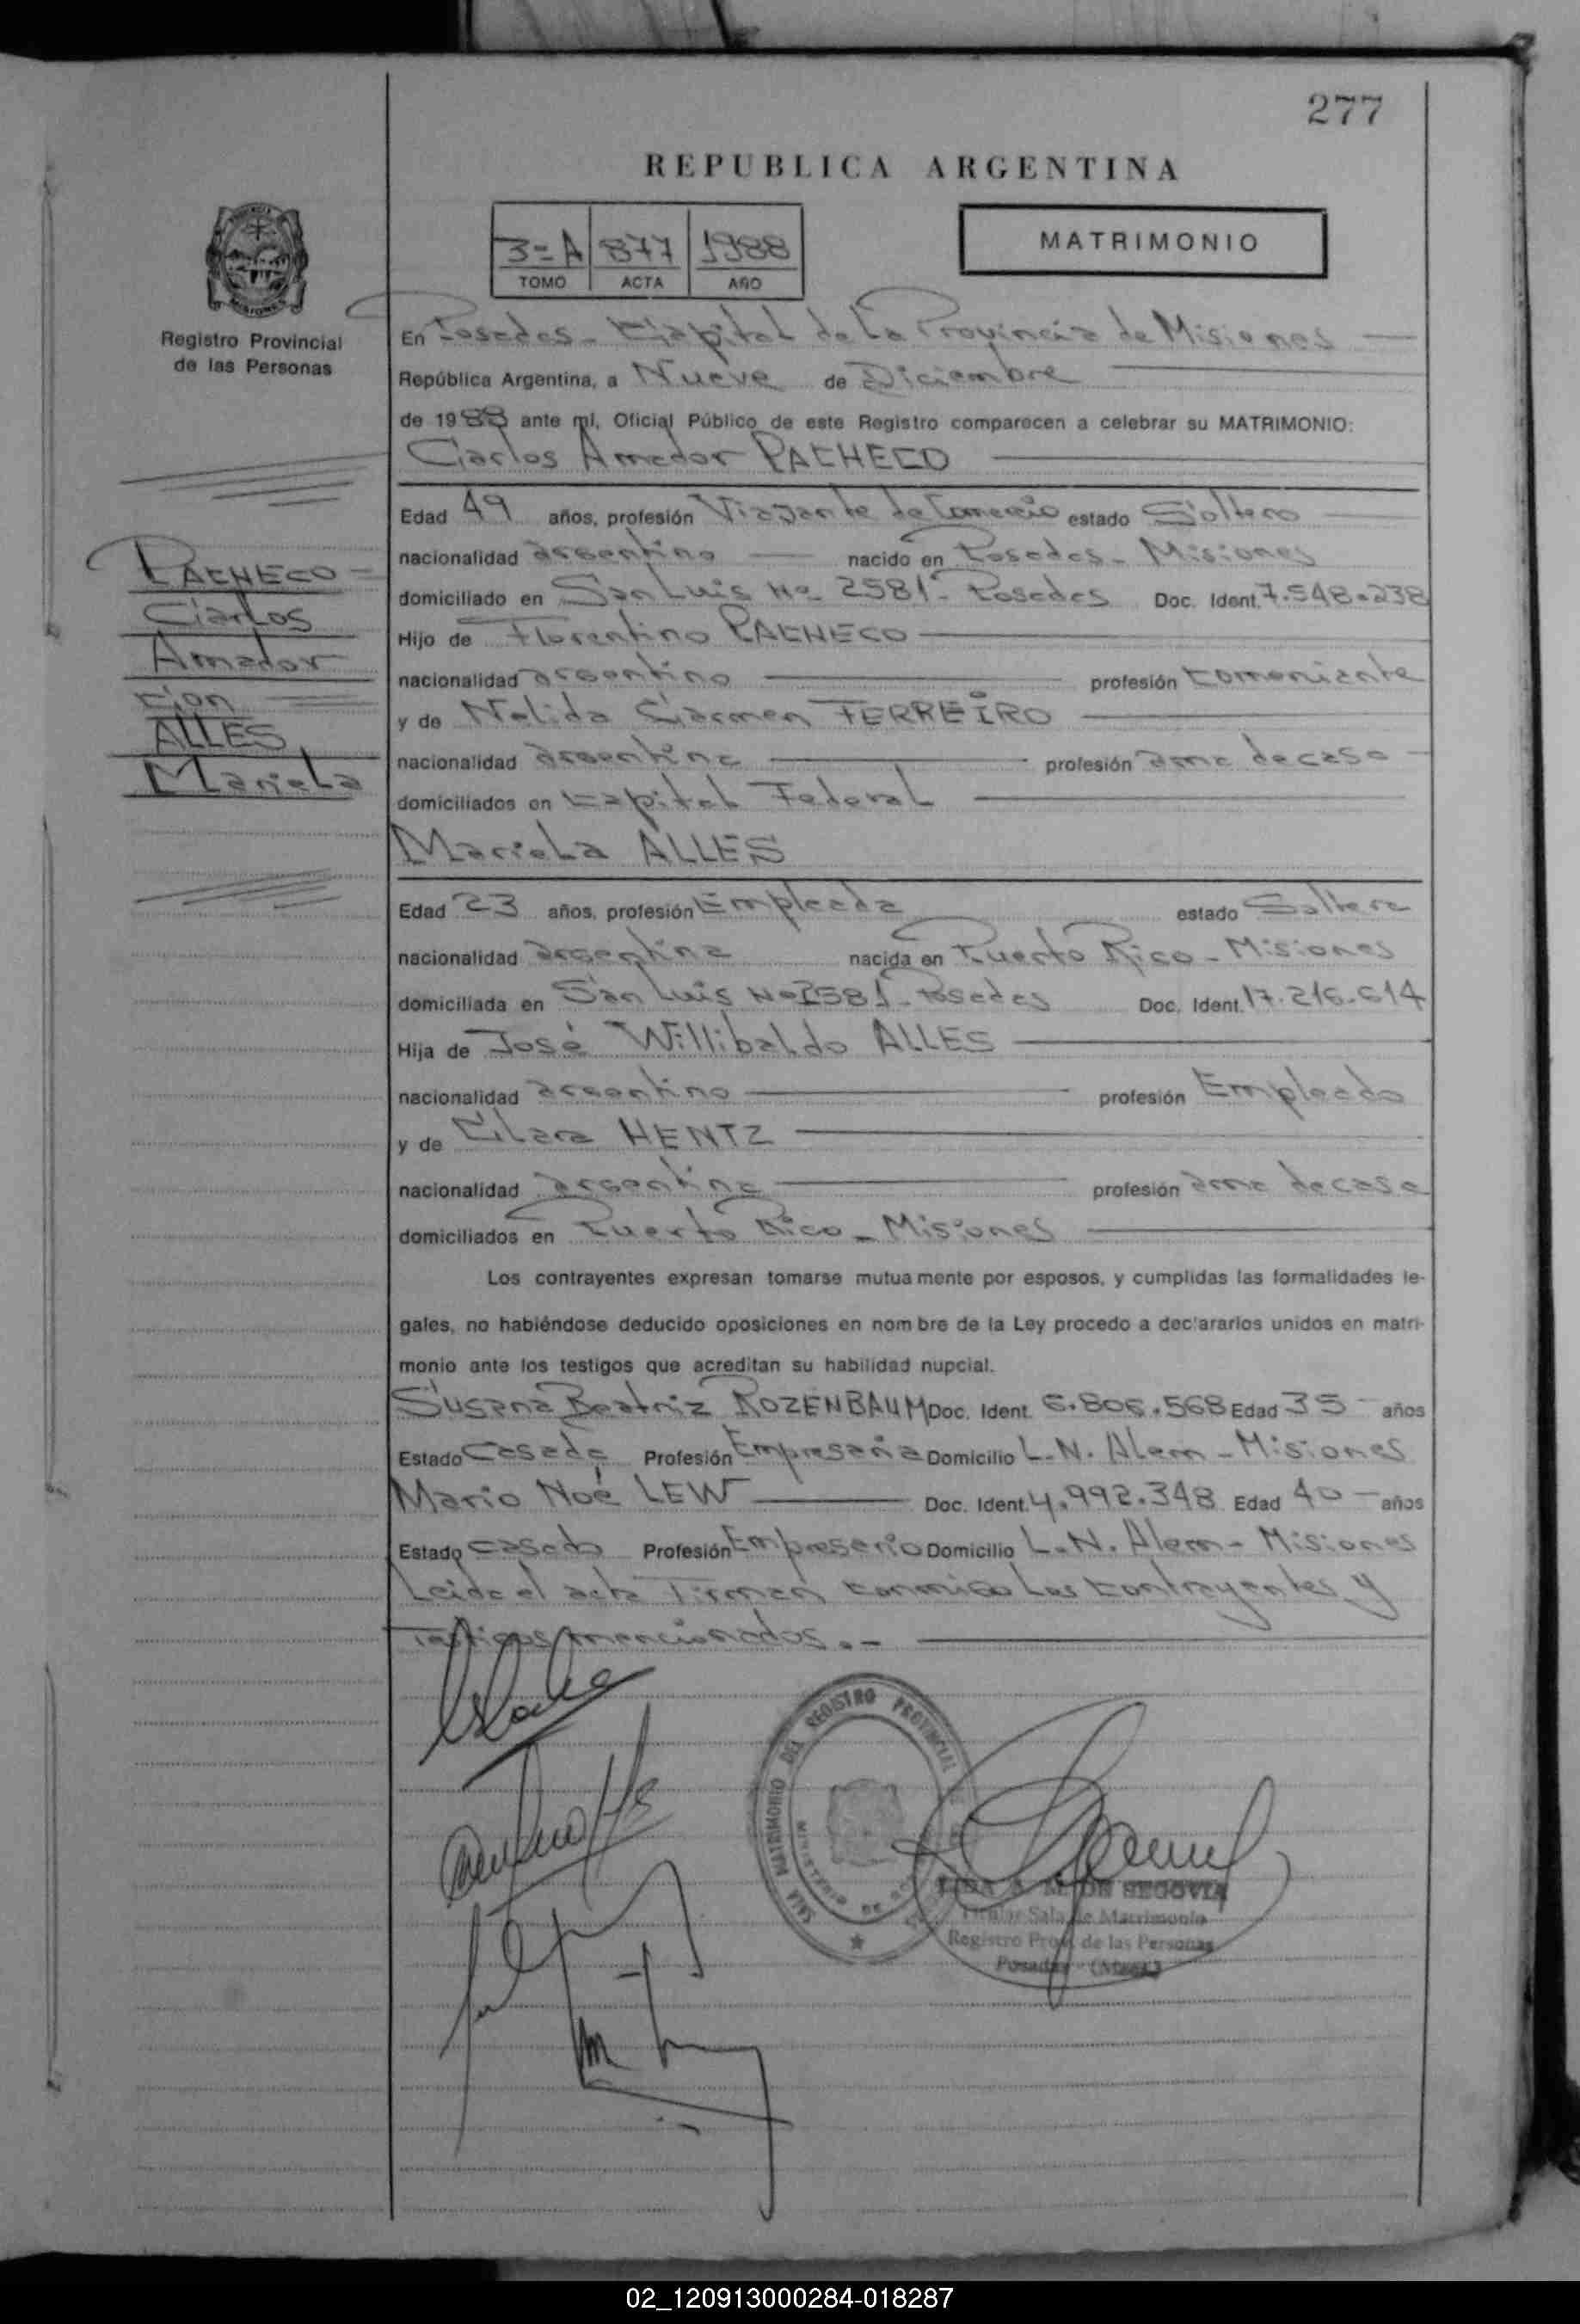 277
REPUBLICA ARGENTINA
3=A 877 1988
TOMO ACTA AÑO
MATRIMONIO
Registro Provincial
de las Personas
En Posadas - Capital de La Provincia de Misiones
República Argentina, a Nueve de Diciembre
de 1988 ante mi, Oficial Público de este Registro comparecen a celebrar su MATRIMONIO:
Carlos Amador PACHECO
Edad 49 años, profesión Viajante de Comercio estado Soltero
nacionalidad argentino nacido en Posadas - Misiones
domiciliado en San Luis Nº 2581 - Posadas Doc. Ident. 7.548.238
Hijo de Florentino PACHECO
nacionalidad argentino profesión Comerciante
y de Nelida Carmen FERREIRO
nacionalidad argentina profesión ama de casa
domiciliados en Capital Federal
Mariela ALLES
Edad 23 años, profesión Empleada estado Soltera
nacionalidad argentina nacida en Puerto Rico - Misiones
domiciliada en San Luis Nº 2581 - Posadas Doc. Ident. 17.216.614
Hija de José Willibaldo ALLES
nacionalidad argentino profesión Empleado
y de Clara HENTZ
nacionalidad argentina profesión ama de casa
domiciliados en Puerto Rico - Misiones
Los contrayentes expresan tomarse mutuamente por esposos, y cumplidas las formalidades le-
gales, no habiéndose deducido oposiciones en nom bre de la Ley procedo a declararlos unidos en matri-
monio ante los testigos que acreditan su habilidad nupcial.
Susana Beatriz ROZENBAUM Doc. Ident. 6.806.568 Edad 35 años
Estado Casada Profesión Empresaria Domicilio L.N. Alem - Misiones
Mario Noé LEW Doc. Ident. 4.992.348 Edad 40 años
Estado casado Profesión Empresario Domicilio L.N. Alem - Misiones
Leida el acta Firman conmigo Los contrayentes y
Testigos mencionados.-
PACHECO
Carlos
Amador
con
ALLES
Mariela
SALA MATRIMONIO DEL REGISTRO PROVINCIAL
DE SEGOVIA
Titular Sala de Matrimonio
Registro Prov. de las Personas
Posadas (Mnes.)
02_120913000284-018287